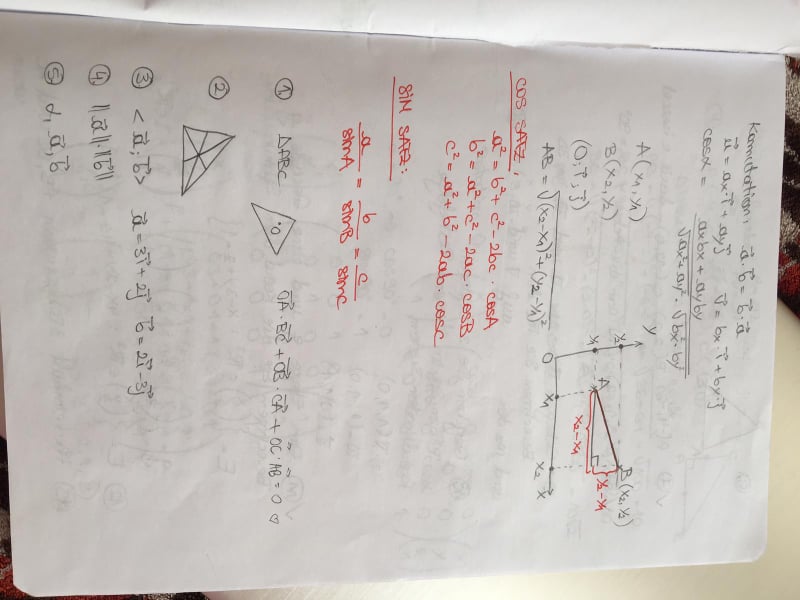 Komutation: a⃗·b⃗ = b⃗·a⃗
u⃗ = ax·i⃗ + ayj⃗ v⃗ = bx·i⃗ + by·j⃗
cosx = axbx + ayby / √ax²+ay² · √bx²·by²
A(x1, y1)
B(x2, y2)
(O; i⃗, j⃗)
AB = √(x2-x1)²+(y2-y1)²
y
y2
y1
A
B(x2, y2)
y2-y1
x2-x1
O
x1
x2
x
cos SATZ:
a² = b² + c² - 2bc · cosA
b² = a² + c² - 2ac · cosB
c² = a² + b² - 2ab · cosC
sin SATZ:
a/sinA = b/sinB = c/sinC
① △ABC O OA⃗·BC⃗ + OB⃗·CA⃗ + OC⃗·AB⃗ = 0 ♡
②
③ < a⃗; b⃗ > a⃗ = 3i⃗ + 2j⃗ b⃗ = 2i⃗ - 3j⃗
④ ||a⃗||·||b⃗||
⑤ α, a⃗, b⃗